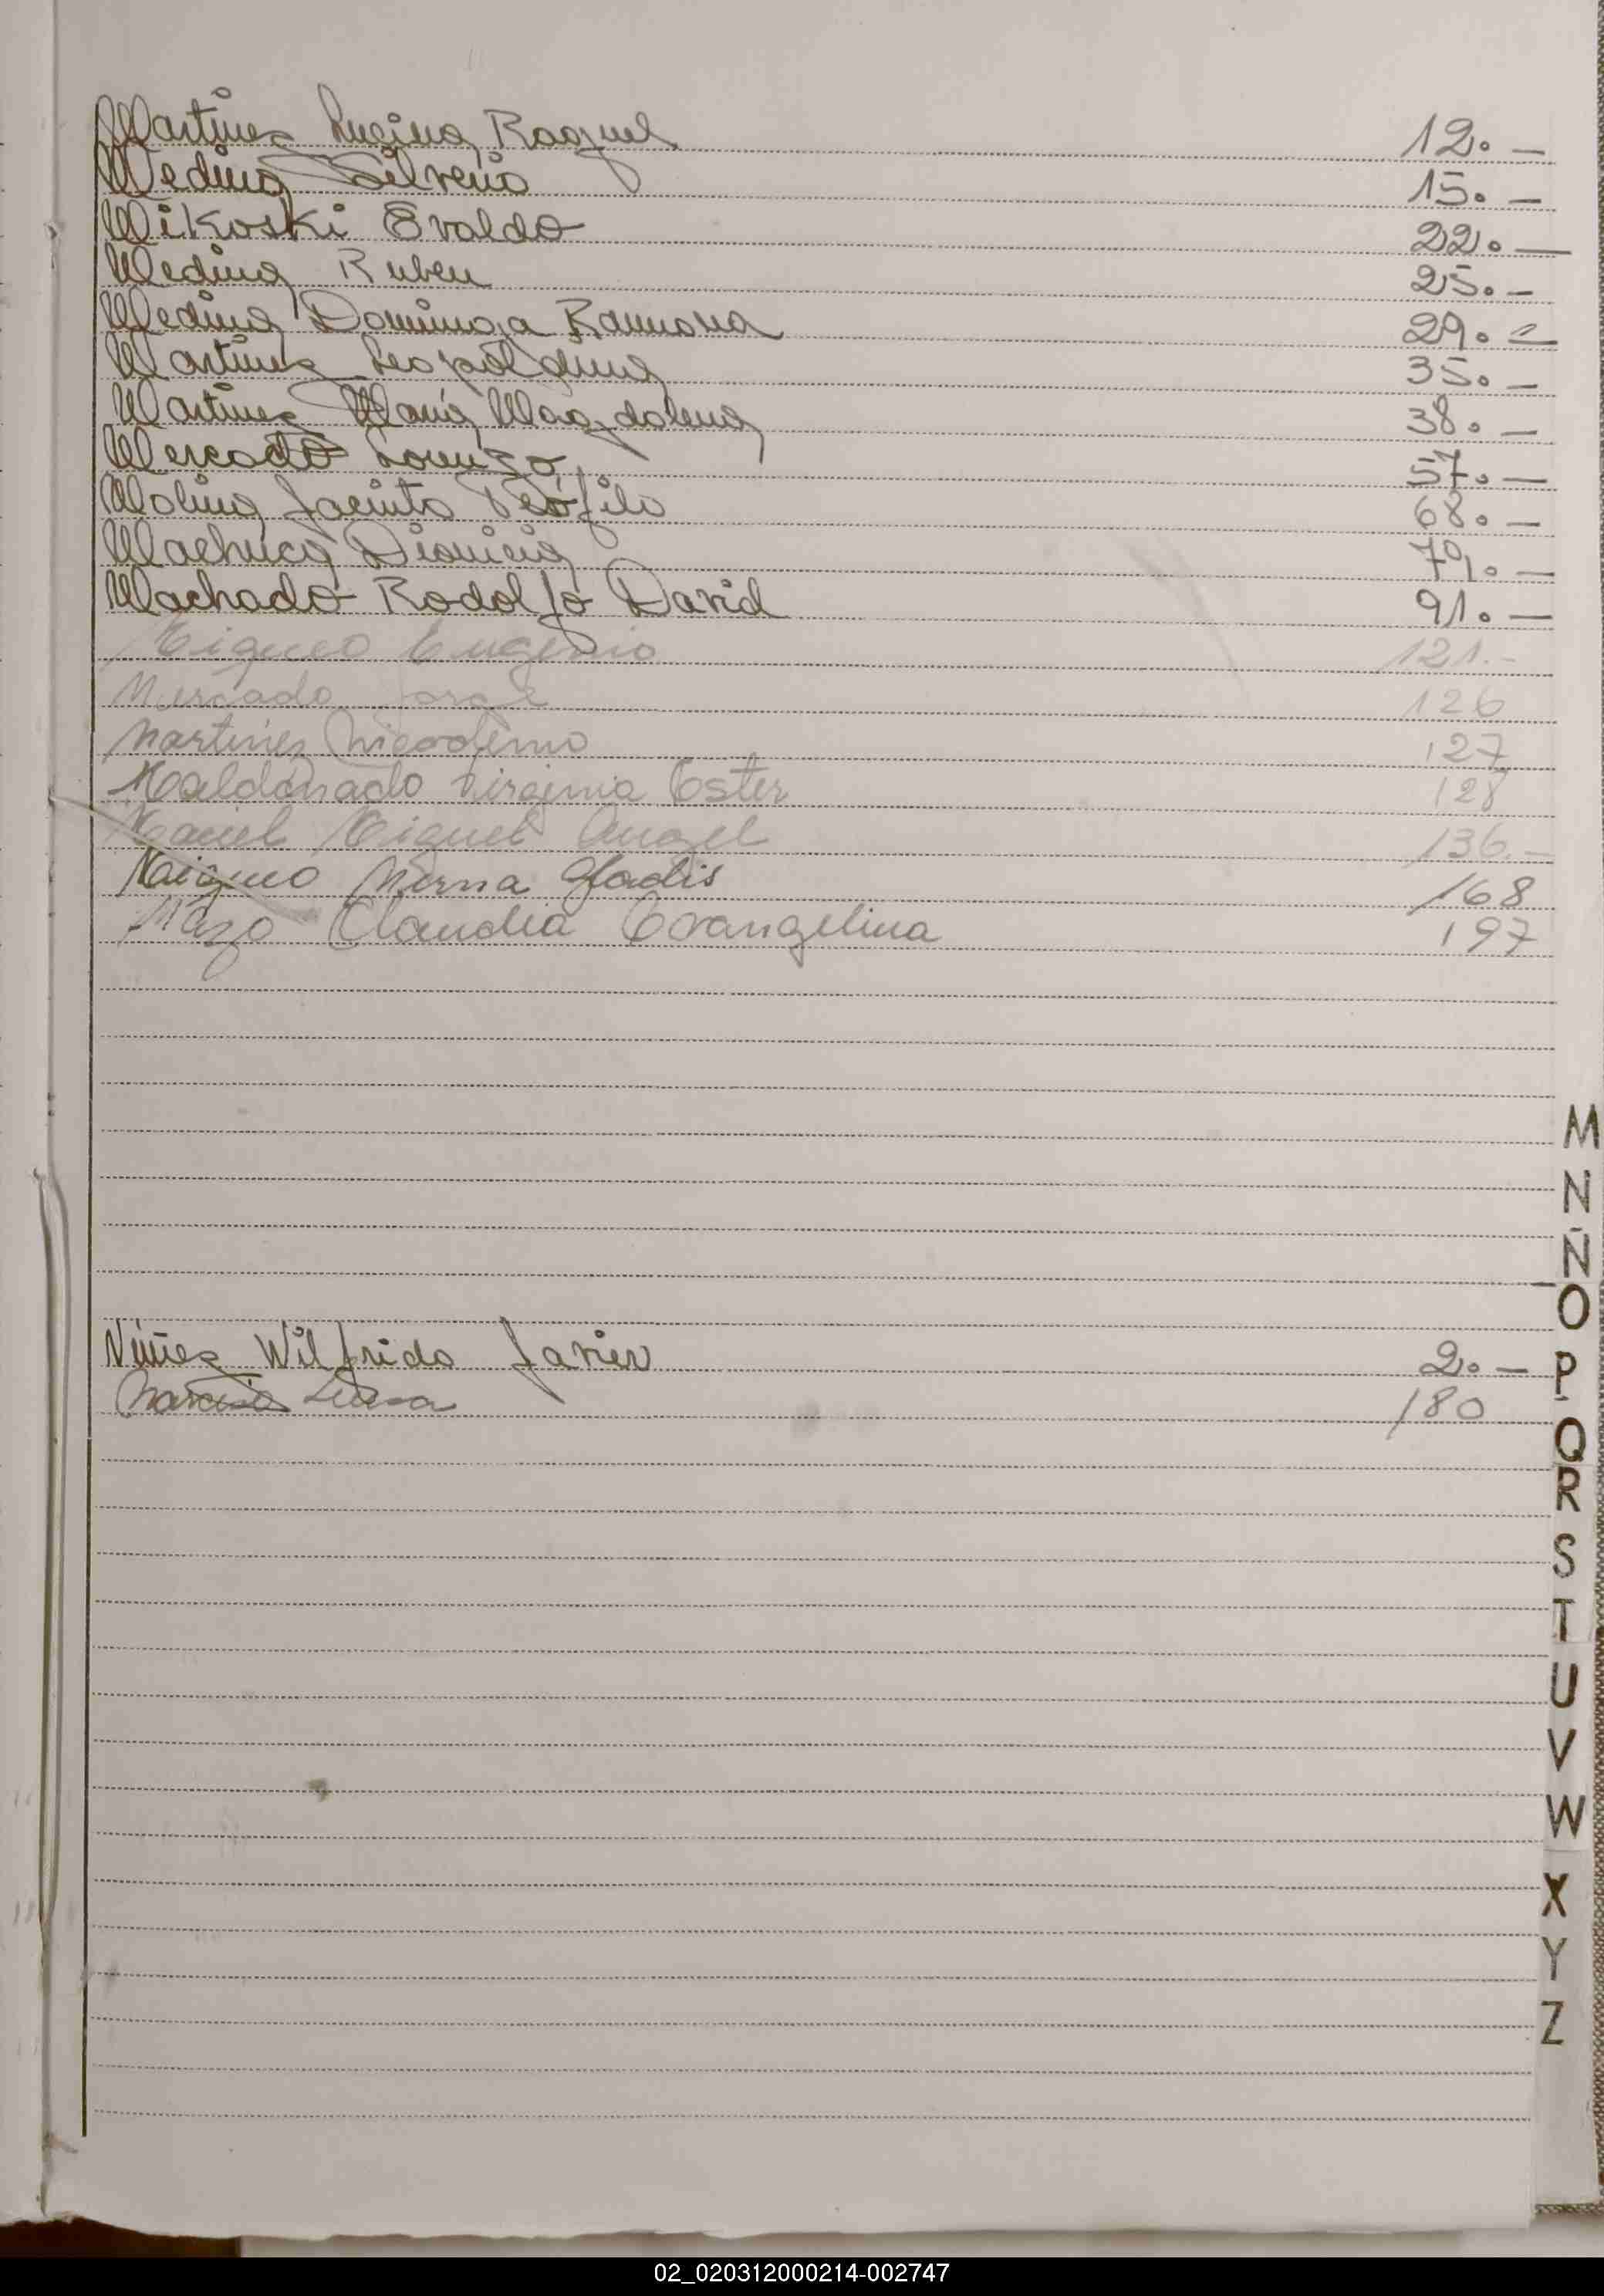 Martinez Lucina Raquel 12.-
Medina Silverio 15.-
Mikoski Evaldo 22.-
Medina Ruben 25.-
Medina Dominga Ramona 29.-
Martinez Leopoldina 35.-
Martinez María Magdalena 38.-
Mercado Lorenzo 57.-
Molina Jacinto Teófilo 68.-
Machuca Dionicia 79.-
Machado Rodolfo David 91.-
Migueo Eugenio 121.-
Mercado Jorge 126
Martines Nicodemo 127
Maldonado Virginia Ester 128
Maciel Miguel Angel 136.-
Mirna Gladis 168
Mazo Claudia Evangelina 197
M
N
Ñ
O
Núñez Wilfrido Javier 2.-
P
Narcisa Luisa 180
Q
R
S
T
U
V
W
X
Y
Z
02_020312000214-002747